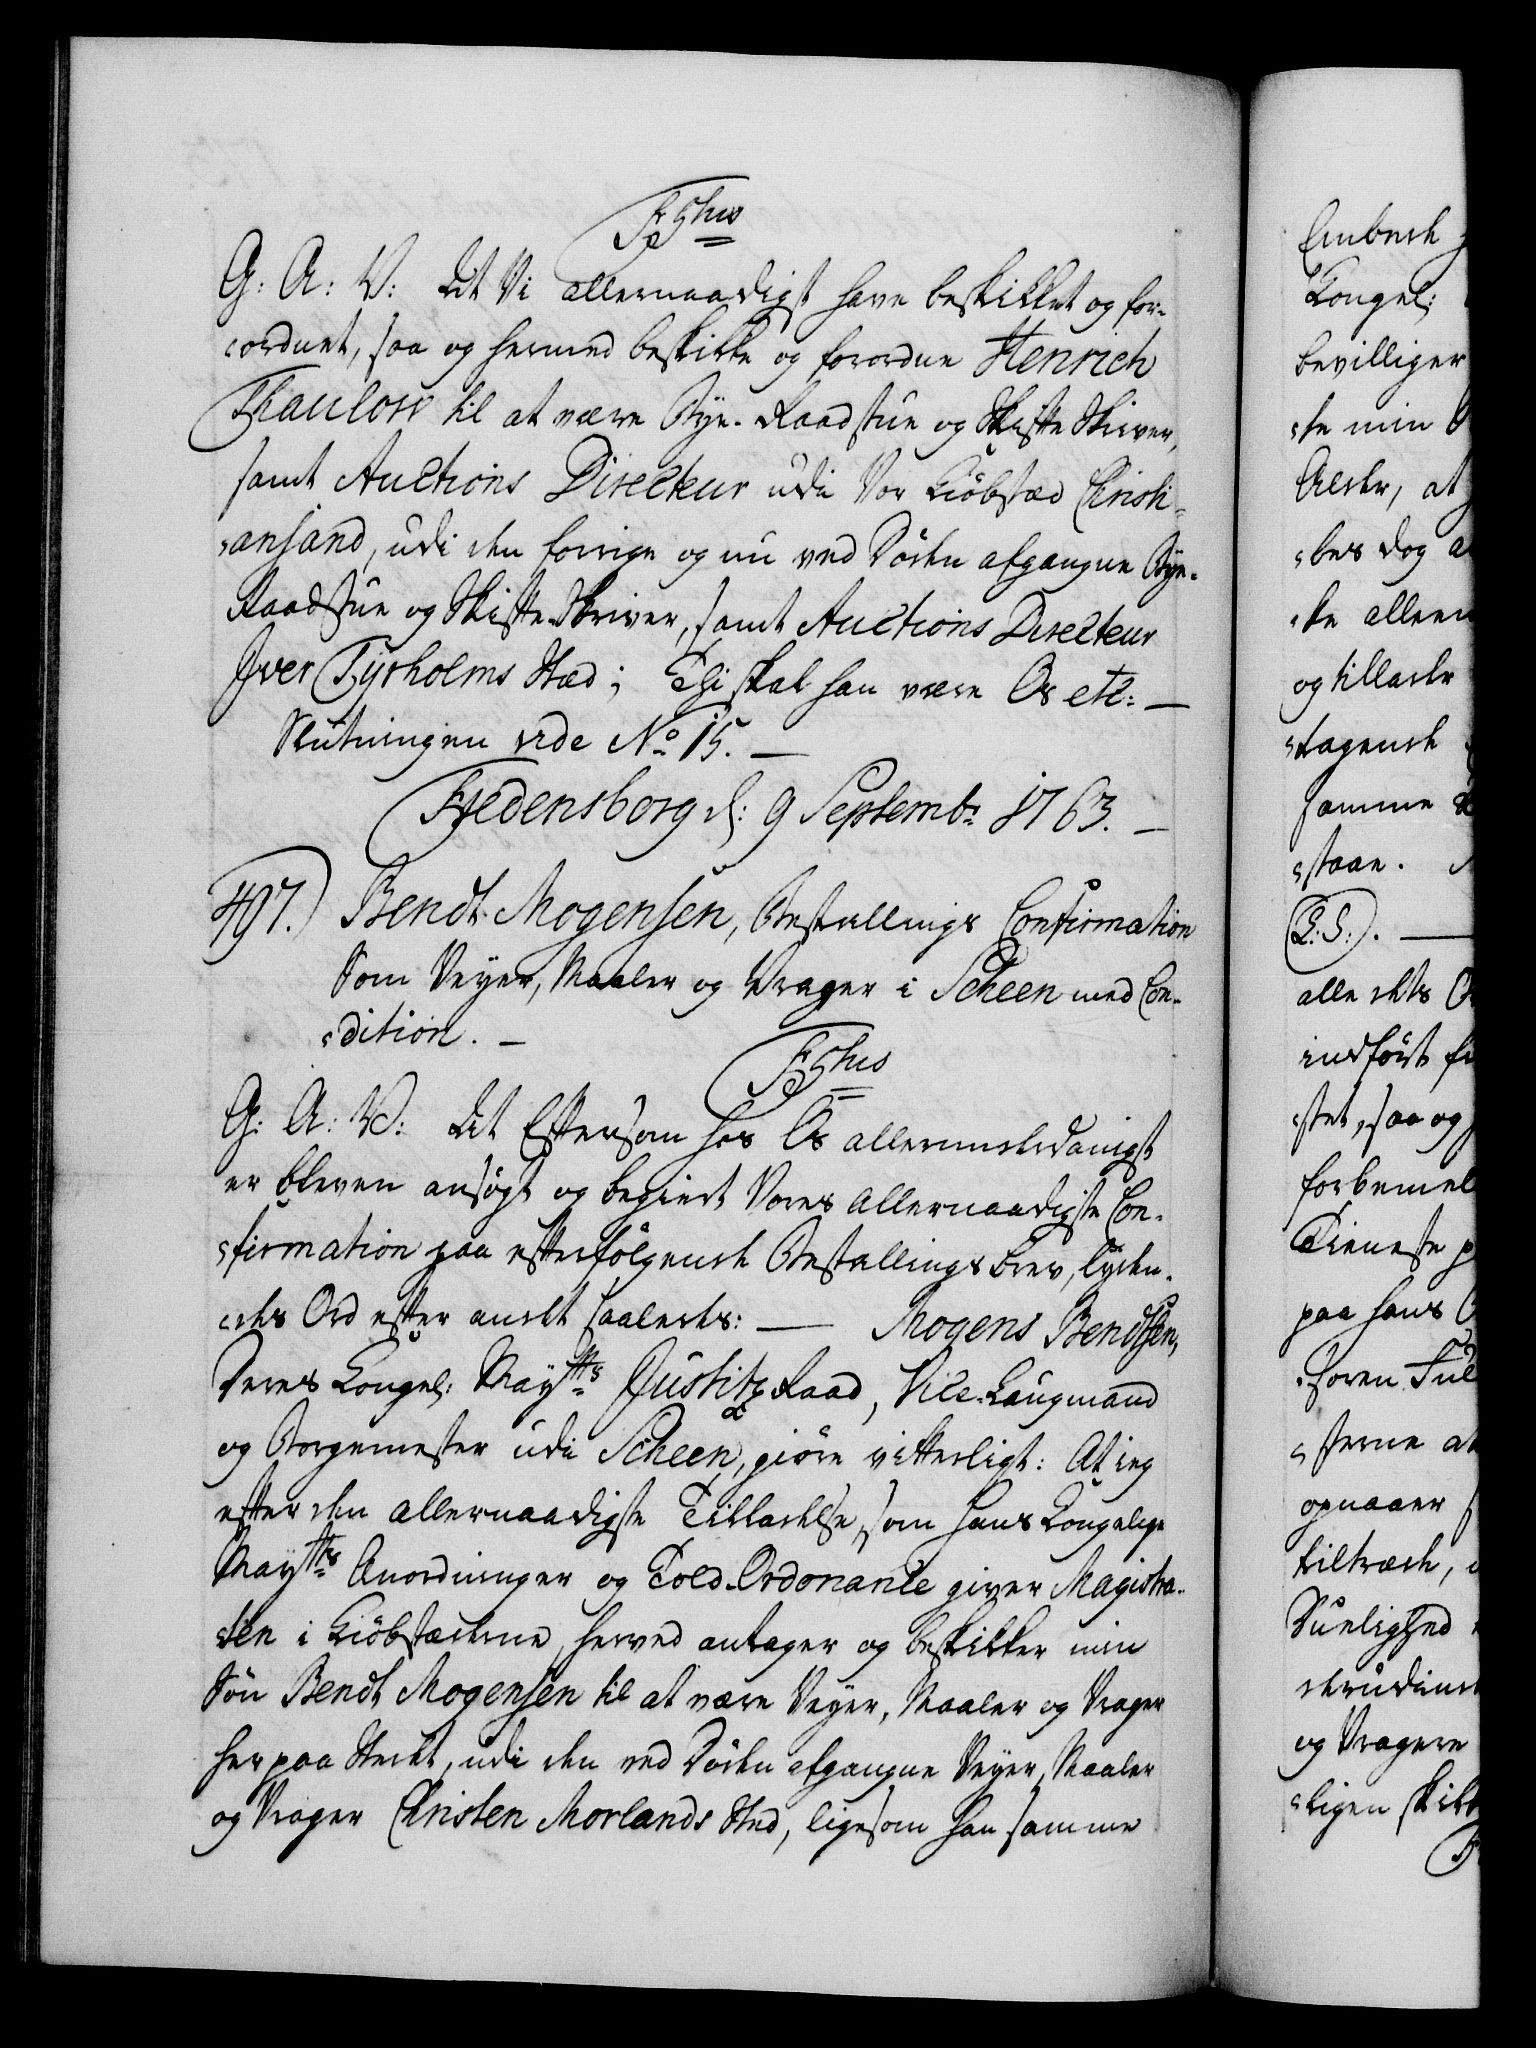 F 5thus
G: A: V: At Vi allernaadigst have beskikket og for-
ordnet, saa og hermed beskikke og forordne Henrich
Thaulow til at være Bye- Raadstue og Skifte Skriver,
samt Auctions Directeur udi Vor Kiøbstæd Christi-
ansand, udi den forrige og nu ved Døden afgangne Bye-
Raadstue og Skifte-Skriver, samt Auctions Directeur
Iver Tyrholms Stæd; Thi skal han være Os etc: —
Slutningen vide No 15. —
Fredensborg d: 9 Septembr 1763. —
497.) Bendt Mogensen, Bestallings Confirmation
Som Veyer, Maaler og Vrager i Scheen med Con-
dition. —
F 5thus
G: A: V: At Eftersom hos Os allerunderdanigst
er bleven ansøgt og begiert Vores Allernaadigste Con-
firmation paa efterfølgende Bestallings Brev, lyden-
des Ord efter andet saaledes: — Mogens Bendtsen,
Deres Kongel: Maytts Justitz Raad, Vice-Laugmand
og Borgemester udi Scheen, giøre vitterligt: At ieg
efter den allernaadigste Tilladelse, som Hans Kongelige
Maytts Anordninger og Told-Ordonance giver Magistra-
ten i Kiøbstæderne, herved antager og beskikker min
Søn Bendt Mogensen til at være Veyer, Maaler og Vrager
her paa Stedet, udi den ved Døden afgangne Veyer, Maaler
og Vrager Christen Morlands Sted, ligesom han samme
Embede
Kongel:
bevilliger
de min
Alder, at
bes dog
de allern
og tillade
tagende
samme
staae.
(L: S:). —
alle dets
indført
det, saa og
forbemel
Tieneste
paa hans
foren
sterne at
opnaaer
tiltræde,
Duelighed
og Vragere
ligen skikk